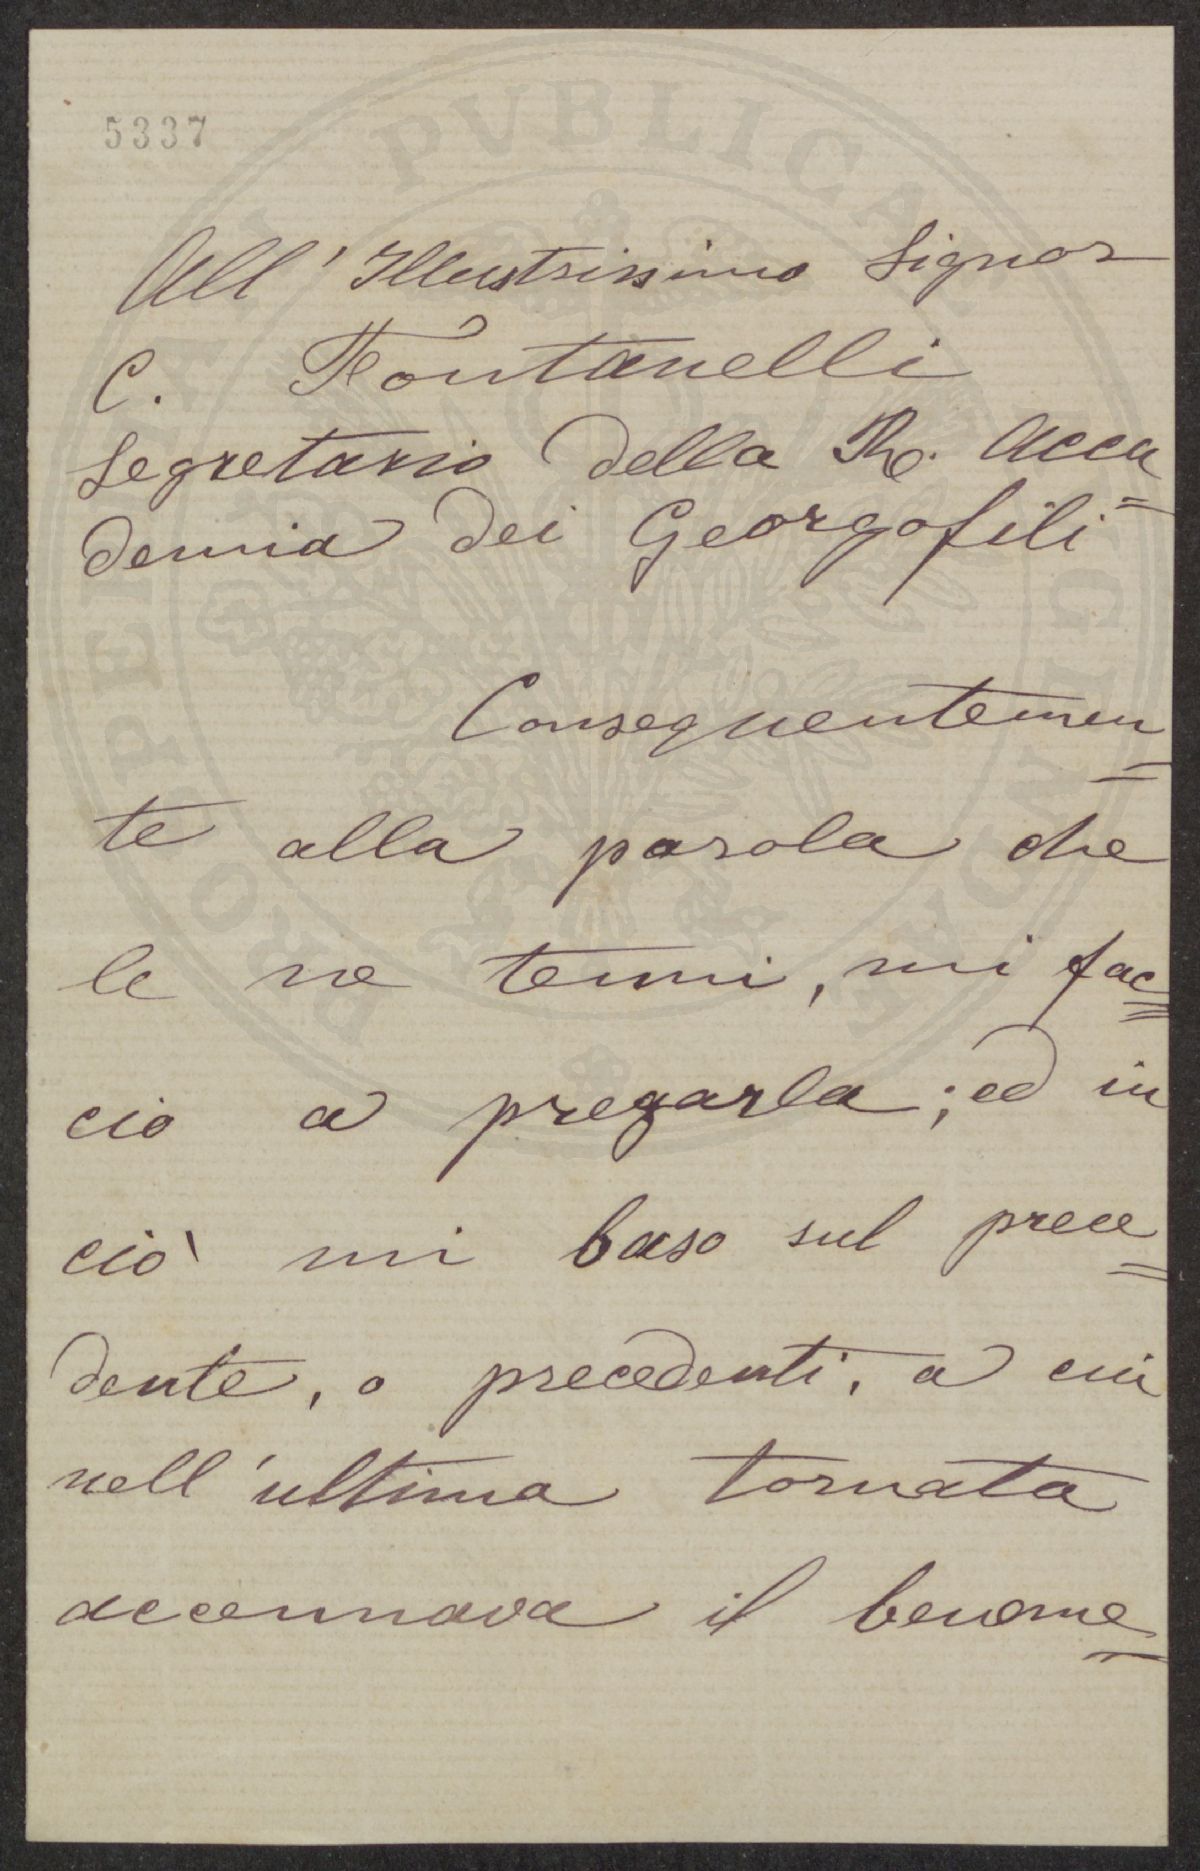 5337
All'Illustrissimo Signor
C. Fontanelli
Segretario della R. Acca=
demia dei Georgofili
Conseguentemen=
te alla parola che
le ne tenni, mi fac=
cio a pregarla; ed in
ciò mi baso sul prece=
dente, o precedenti, a cui
nell'ultima tornata
accennava il beneme=